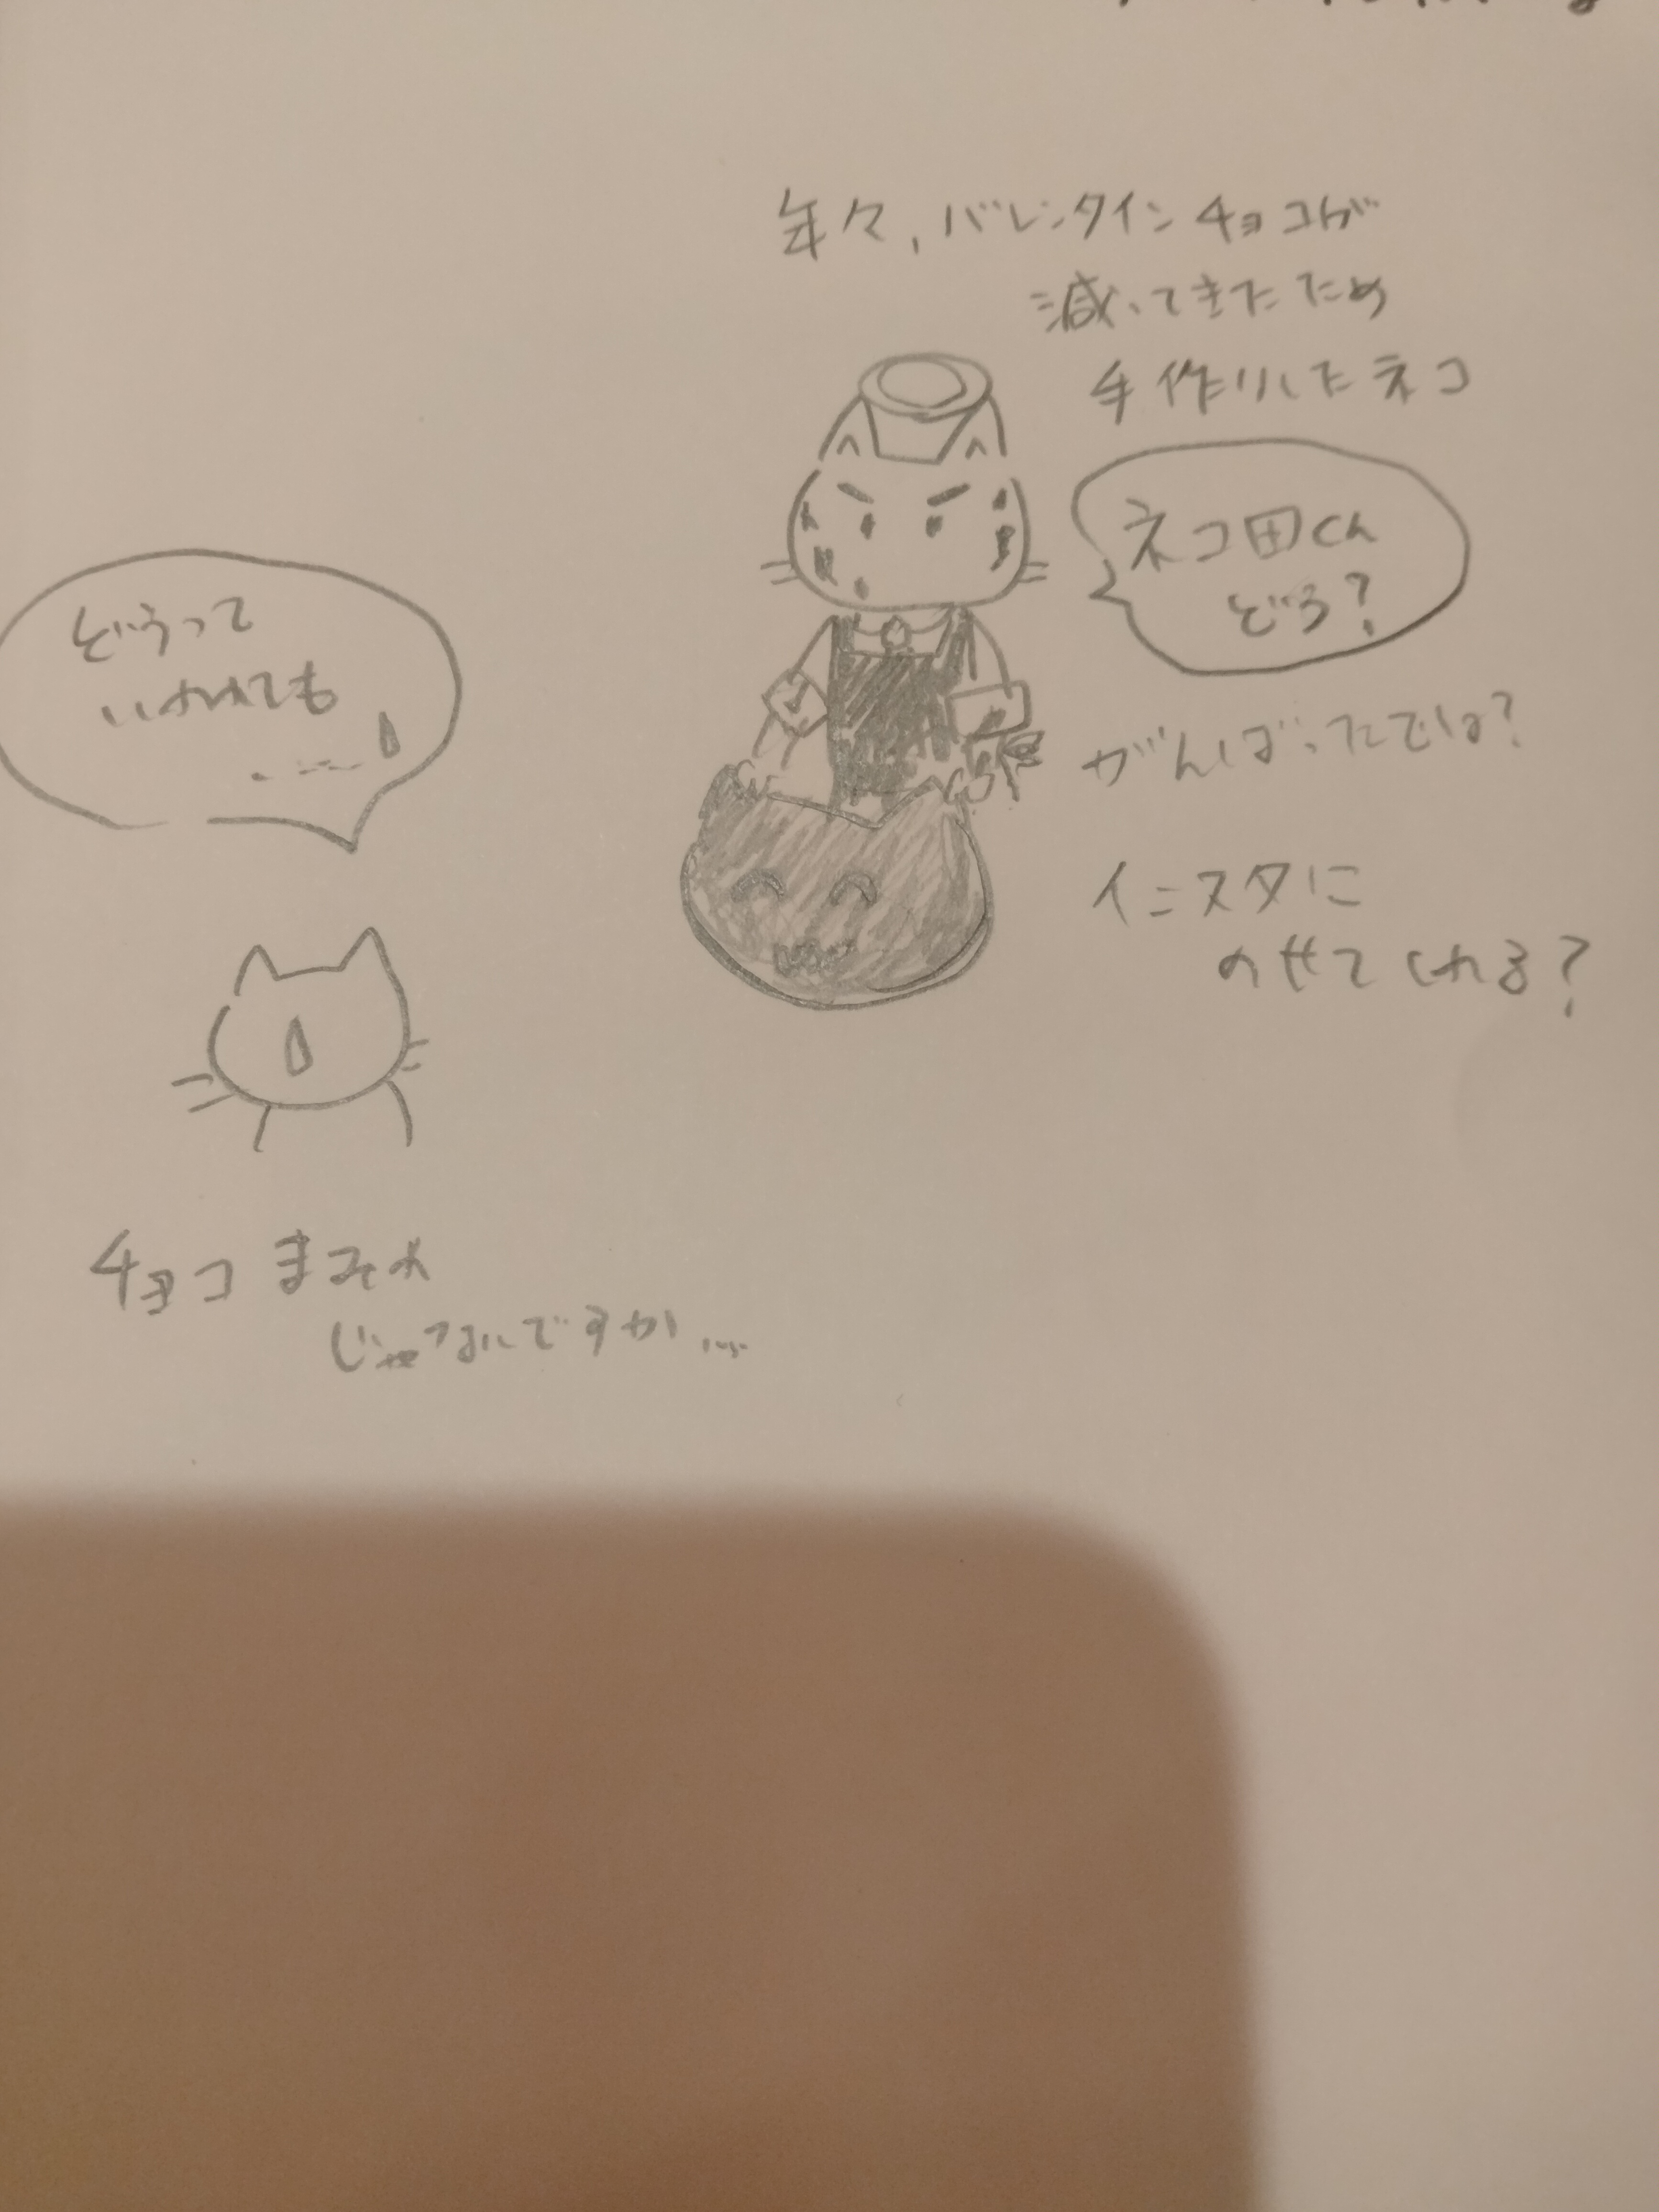 年々、バレンタインチョコが
減ってきたため
手作りしたネコ
ネコ田くん
どう?
がんばったでしょ?
イニスタに
のせてくれる?
どうって
いわれても
----
チョコまみれ
じゃないですか…